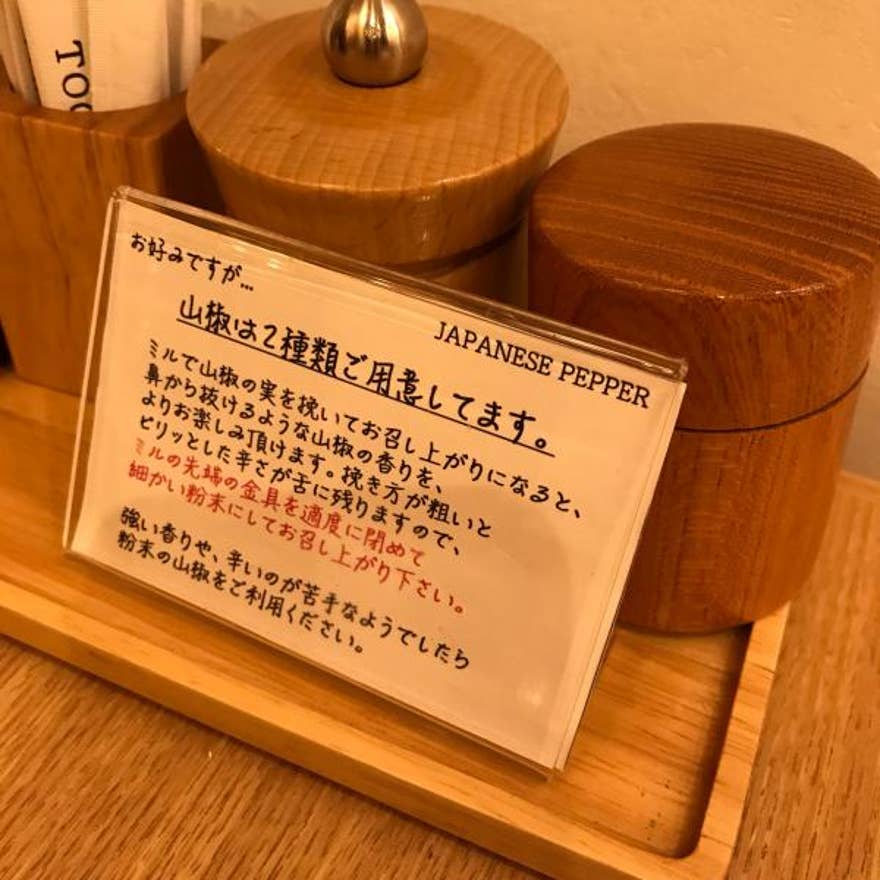 TOO
お好みですが…
JAPANESE PEPPER
山椒は2種類ご用意してます。
ミルで山椒の実を挽いてお召し上がりになると、
鼻から抜けるような山椒の香りを、
よりお楽しみ頂けます。挽き方が粗いと
ピリッとした辛さが舌に残りますので、
ミルの先端の金具を適度に閉めて
細かい粉末にしてお召し上がり下さい。
強い香りや、辛いのが苦手なようでしたら
粉末の山椒をご利用ください。